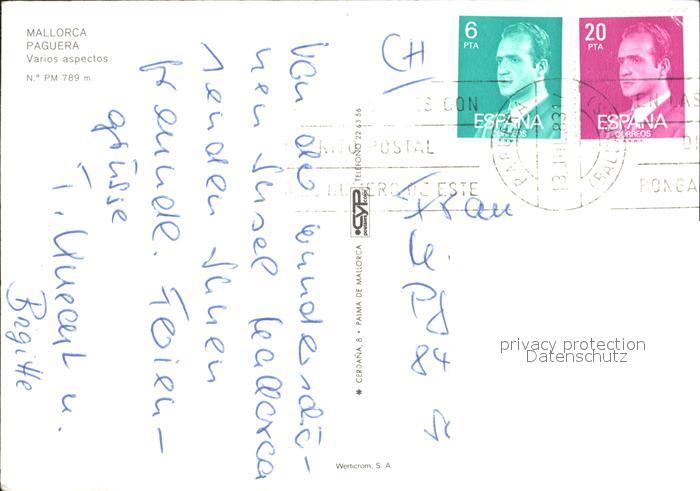 MALLORCA
PAGUERA
Varios aspectos
N.º PM 789 m
6
PTA
ESPAÑA
CORREOS
20
PTA
ESPAÑA
CORREOS
ES CON
POSTAL
NUMERO DE ESTE
EN LAS
DI
PONGA
13 JUL 83
CH
Von der wunderschö-
nen Insel Mallorca
senden Ihnen
freundl. Ferien-
grüsse
u.
Brigitte
Frau
84
TELEFONO 22 63 56
CYP
✱ CERDAÑA, 8 • PALMA DE MALLORCA
Werticrom, S. A.
privacy protection
Datenschutz